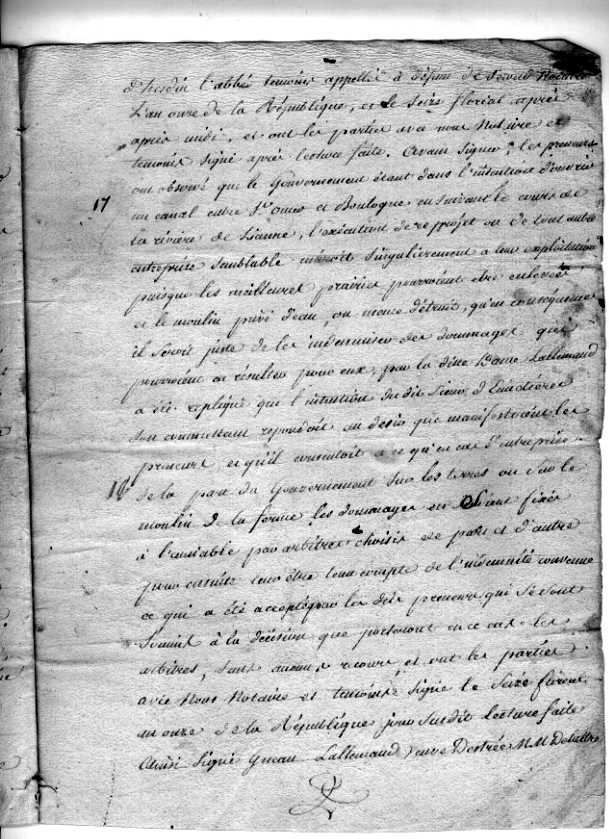 d'hesdin l'abbé temoins appellé à défaut de second Notaire
L'an onze de la République, et le seize floreal après
après midi, et ont les parties avec nous Notaire et
temoins signé après lecture faite. Avant signer, les preneurs
ont observé que le Gouvernement étant dans l'intention d'ouvrir
17 un canal entre St. Omer et Boulogne en suivant le cours de
la rivière de Lianne, l'exécution de ce projet ou de tout autre
entreprise semblable nuiroit singulierement a leur exploitation
puisque les meilleures prairies pourroient etre enlevées
et le moulin privé d'eau, ou meme détruit, qu'en consequence
il seroit juste de les indemniser des dommages qui
pourroient en résulter pour eux, par la ditte Dame Lallemand
a été repliqué que l'intention du dit Sieur
son commettant repondoit au desir que manifestoient les
preneurs et qu'il consentoit a ce qu'en cas d'entreprise
18 de la part du Gouvernement sur les terres ou sur le
moulin de la ferme, les dommages en soient fixés
à l'amiable par arbitres choisis de part et d'autre
pour ensuite leur être tenu compte de l'indemnité convenue
ce qui a été accepté par les dits preneurs qui se sont
soumis à la décision que porteront en ce cas les
arbitres, sans aucun recours et ont les parties
avec Nous Notaire et temoins signé le seize floreal
an onze de la République jour susdit lecture faite
Ainsi signé Lallemand, Destrée M.M Delattre